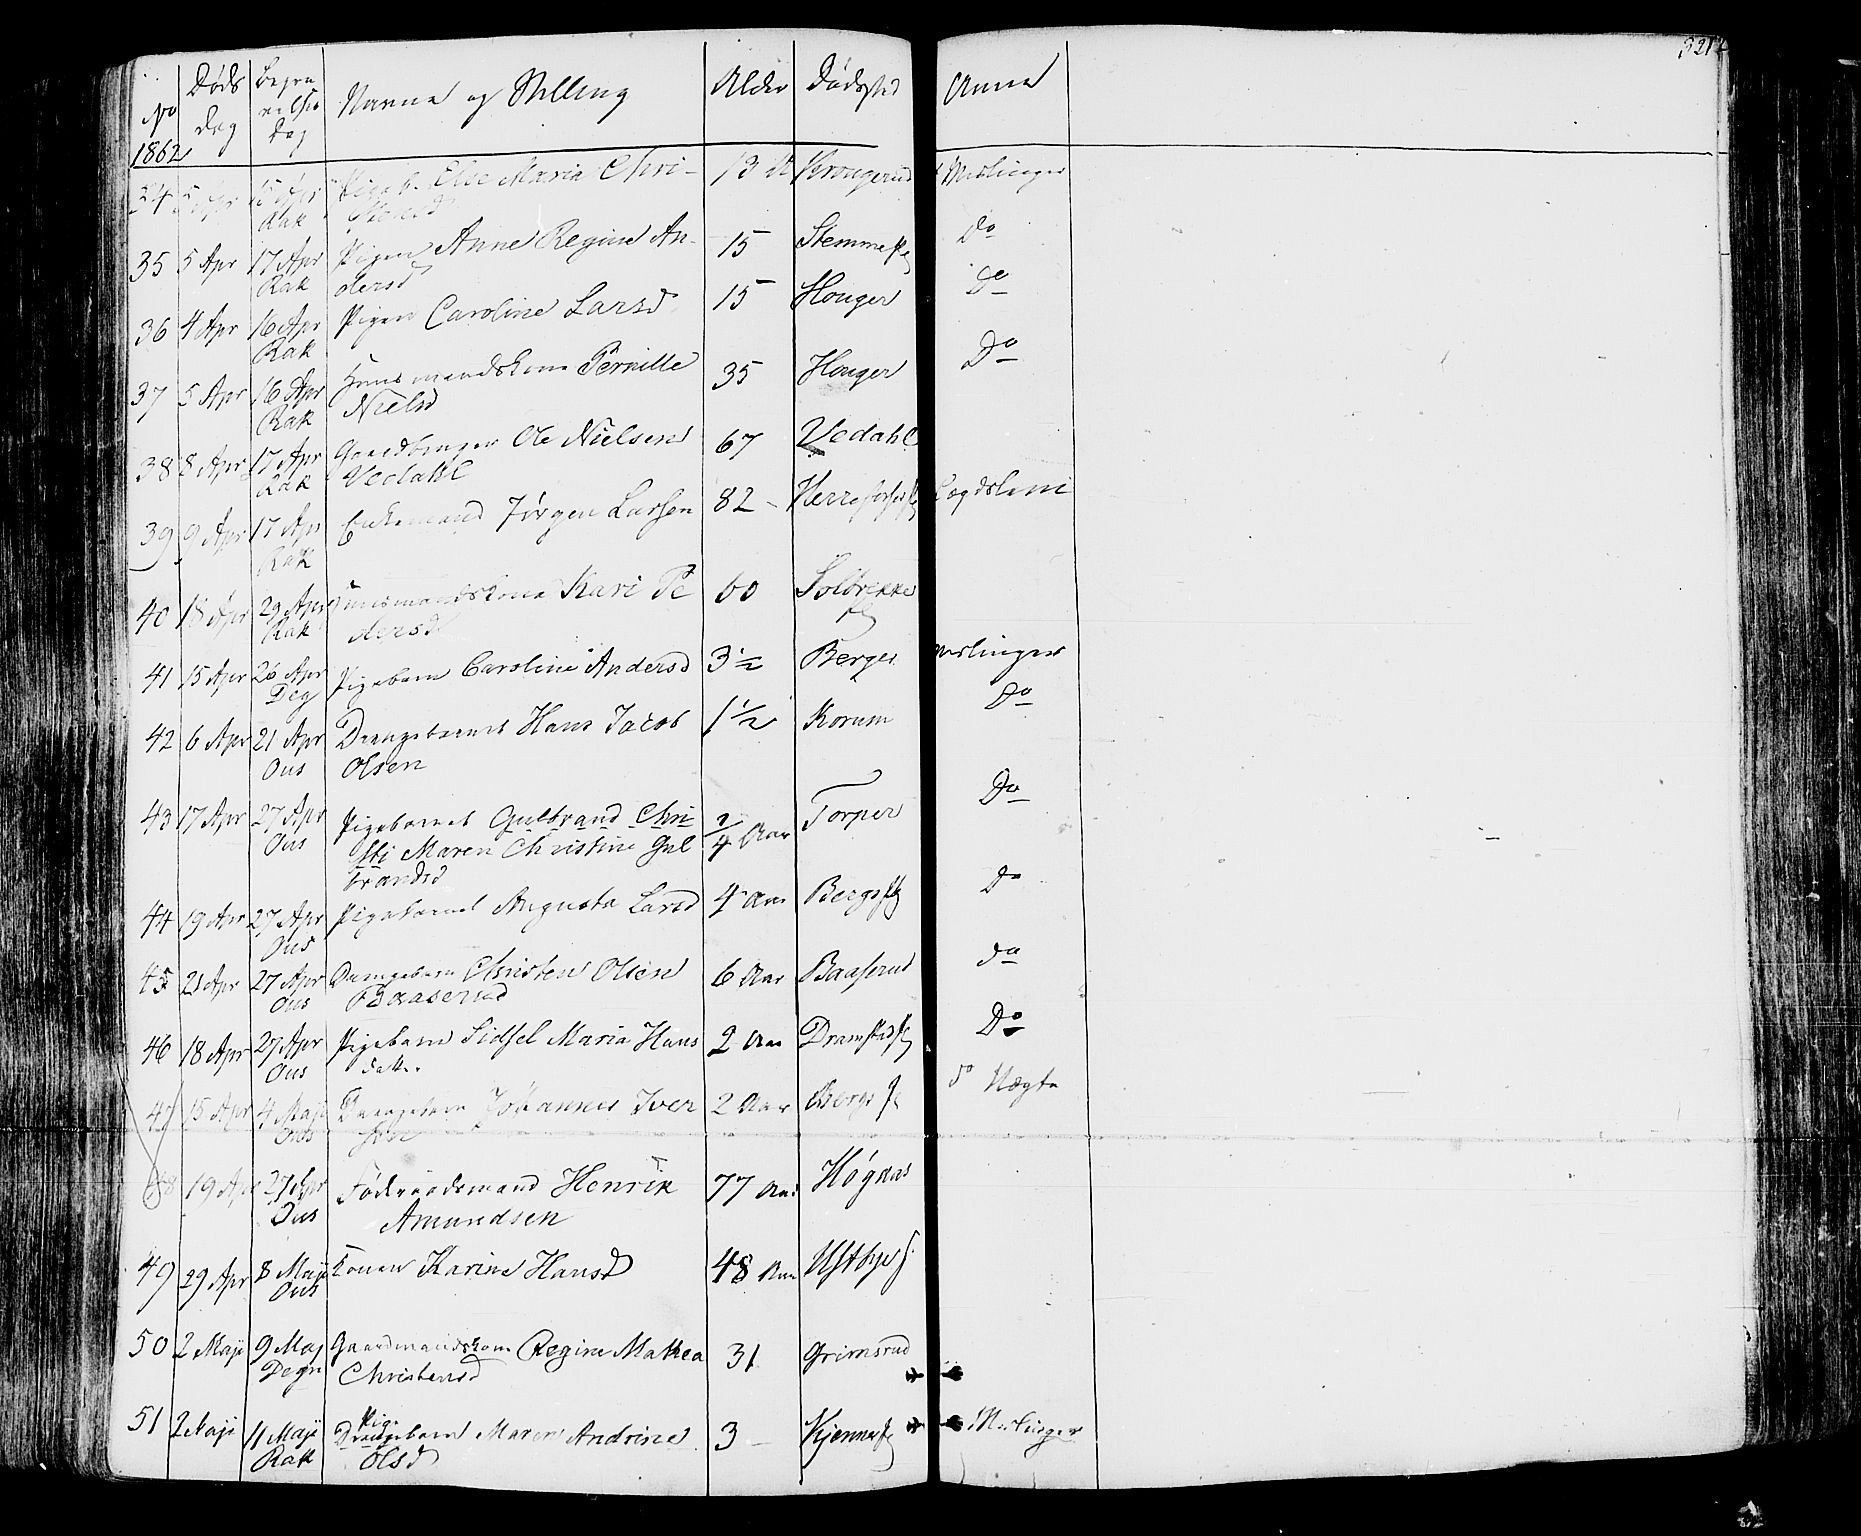 321
No
1862
Døds
dag
Begra
velses
Dag
Navne og Stilling
Alder
Dødssted
Anm
34 5 Apr 15 Apr Pigeb. Else Maria Chri- 13 A Krongerud Meslinger
Rak stensd
35 5 Apr 17 Apr Pigen Anne Regine An- 15 Stemme Do
Rak dersd
36 4 Apr 16 Apr Pigen Caroline Larsd 15 Houger Do
Rak
37 5 Apr 16 Apr Huusmandskone Pernille 35 Houger Do
Rak Nielsd
38 8 Apr 17 Apr Gaardbruger Ole Nielsen 67 Vedahl
Rak Vedahl
39 9 Apr 17 Apr Enkemand Jørgen Larsen 82 - Lægdslem
Rak
40 18 Apr 29 Apr Huusmandskone Kari Pe 60 Solbrekke
Rak dersd
41 15 Apr 26 Apr Pigebarn Caroline Andersd 3 ½ Berger Meslinger
Deg
42 6 Apr 21 Apr Drengebarnet Hans Jacob 1 ½ Korum Do
Ous Olsen
43 17 Apr 27 Apr Pigebarnet Gulbrand Chri 2/4 Aar Torper Do
Ous sti Maren Christine Gul
brandsd
44 19 Apr 27 Apr Pigebarnet Augusta Larsd 4 Aar Bergs Do
Ous
45 21 Apr 27 Apr Drengebarn Christen Olsen 6 Aar Baaserud do
Ous Baaserud
46 18 Apr 27 Apr Pigebarn Sidsel Maria Hans 2 Aar Dramstad Do
Ous datter
47 15 Apr 4 Maji Drengebarn Johannes Iver 2 Aar Bergs do Kægta
Ous sen
48 19 Apr 27 Apr Føderaadsmand Henrik 77 Aar Høgnas
Ous Amundsen
49 29 Apr 8 Maji Konen Karine Hansd 48 Aar Ustbye
Ous
50 2 Maji 9 Maj Gaardmandskone Regine Mathea 31 Grimsrud
Degn Christensd
51 2 Maji 11 Maji Pige Drengebarn Maren Andrine 3 - Kjenne Meslinger
Rak Olsd